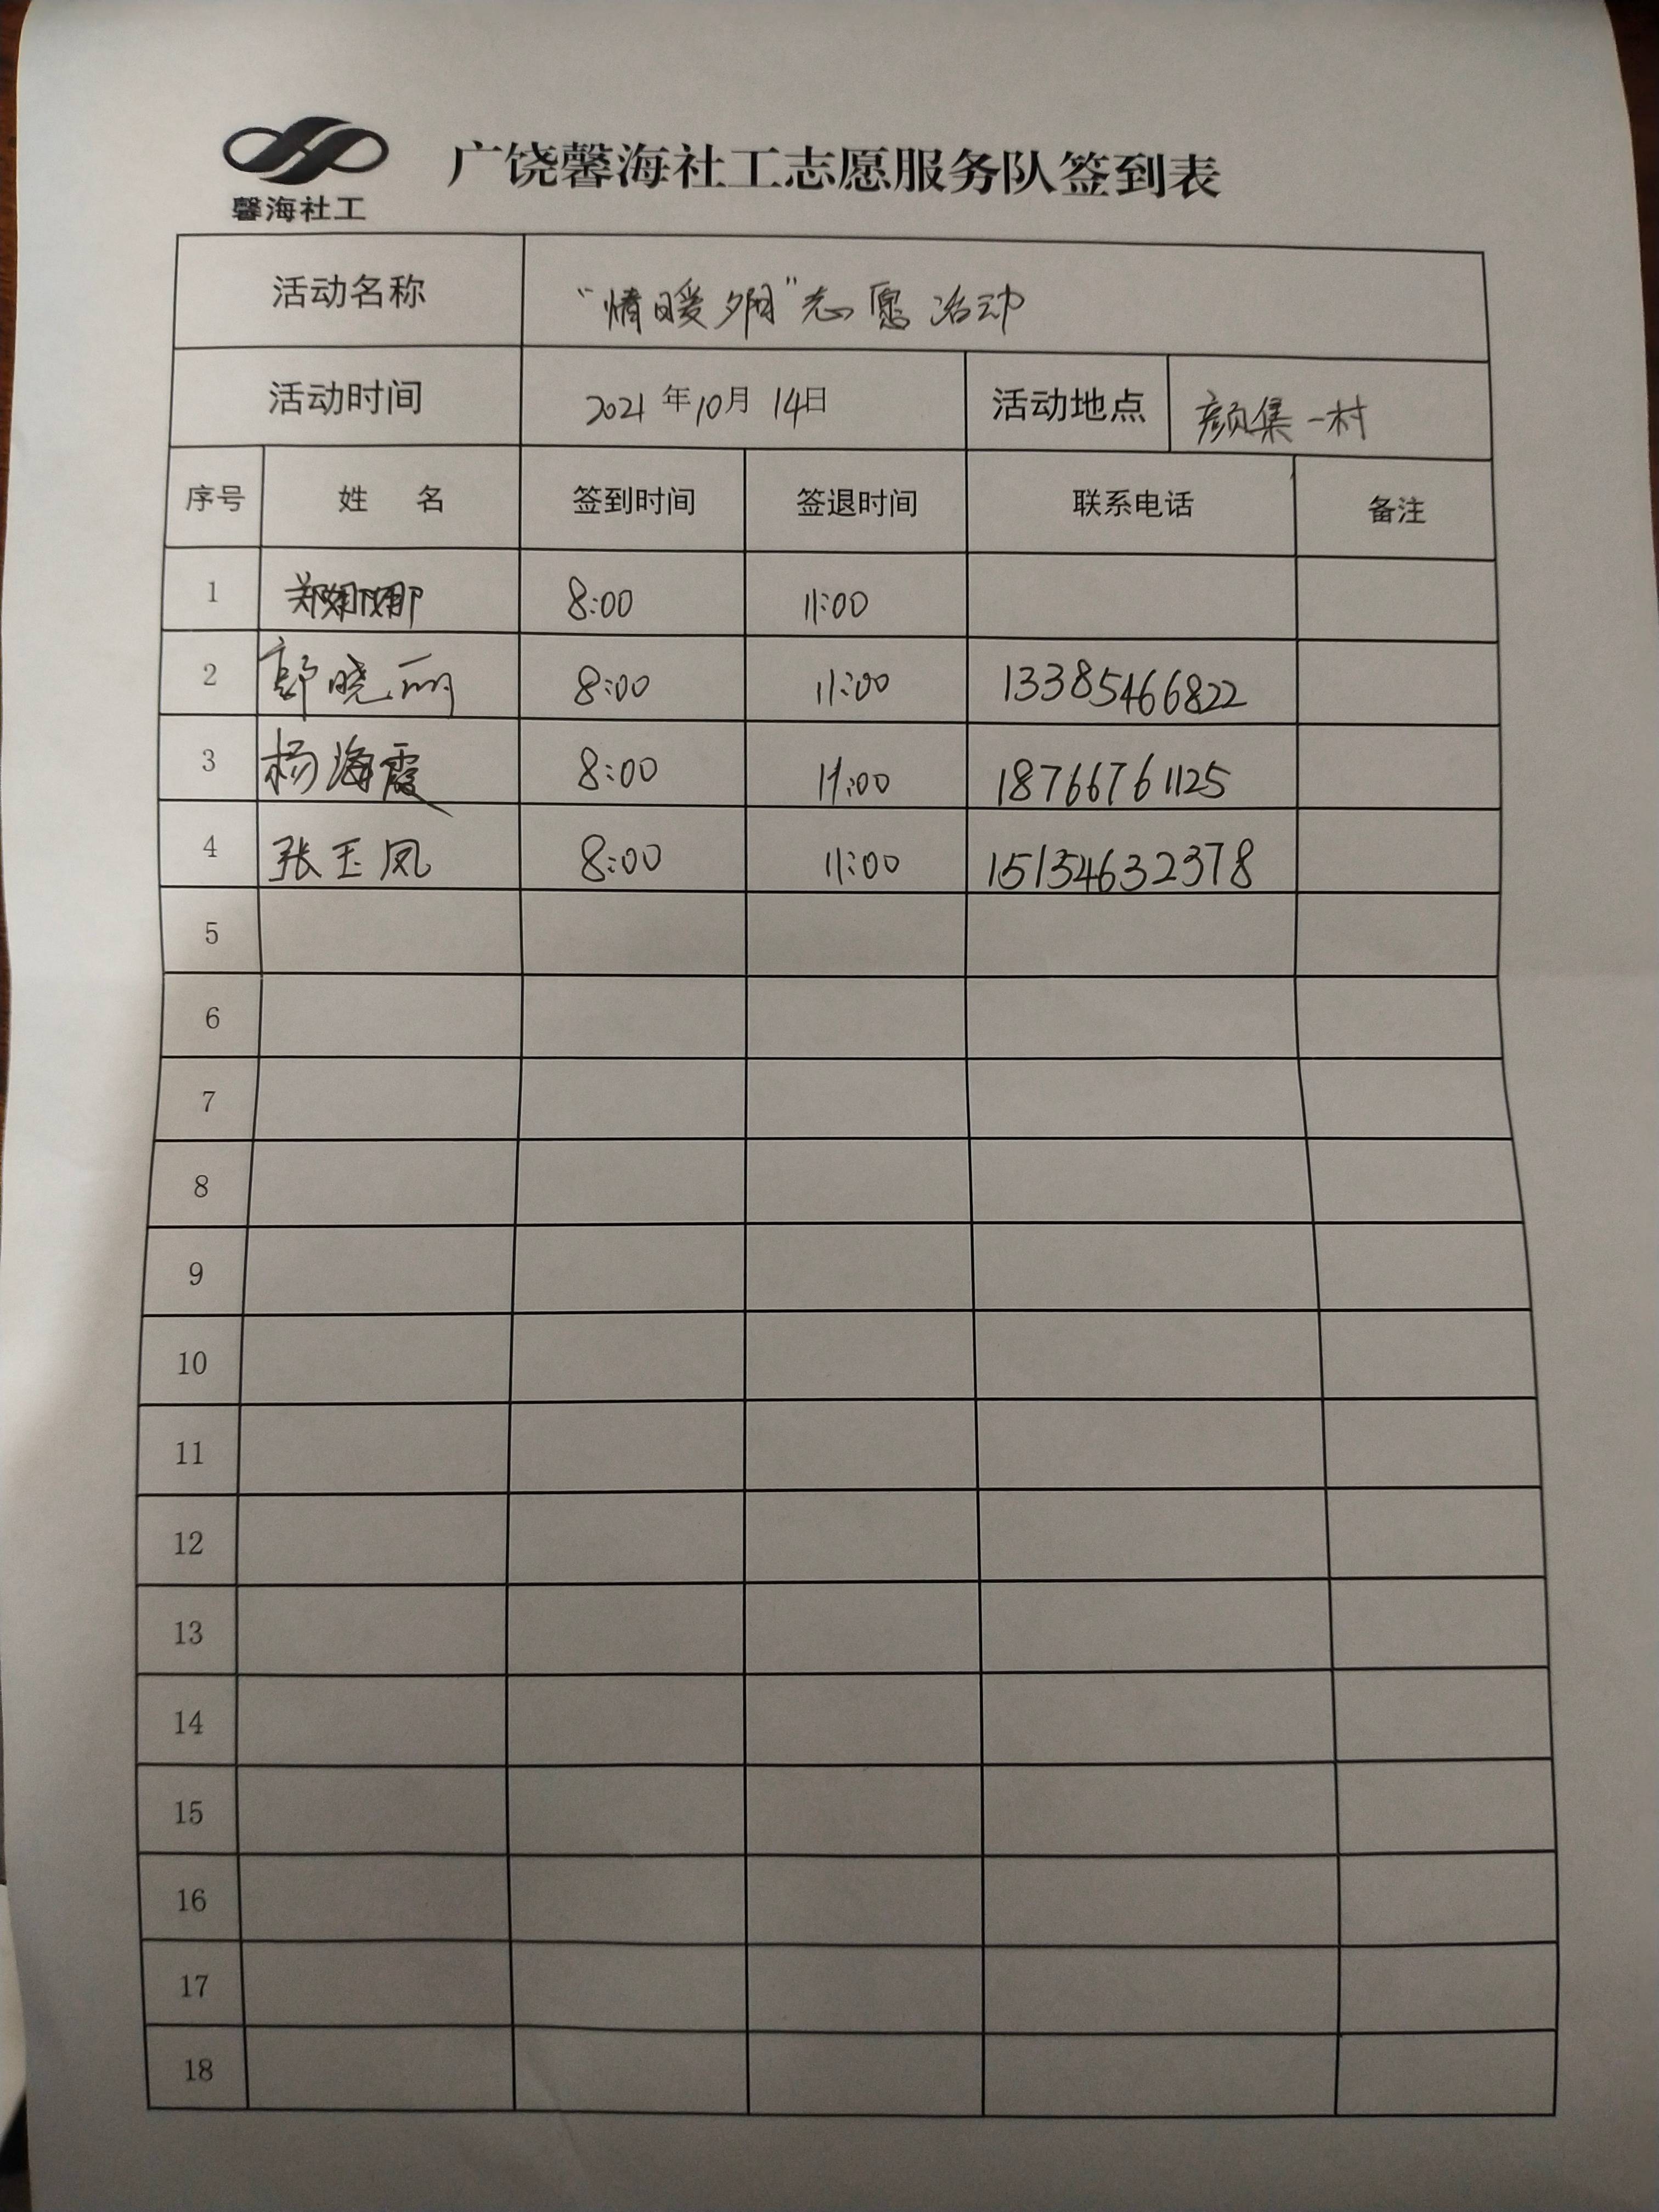 馨海社工
广饶馨海社工志愿服务队签到表
活动名称 “情暖夕阳”志愿活动
活动时间 2021年10月14日 活动地点 颜集一村
序号 姓 名 签到时间 签退时间 联系电话 备注
1 郑娜娜 8:00 11:00
2 郭晓丽 8:00 11:00 13385466822
3 杨海霞 8:00 11:00 18766761125
4 张玉凤 8:00 11:00 15154632378
5
6
7
8
9
10
11
12
13
14
15
16
17
18